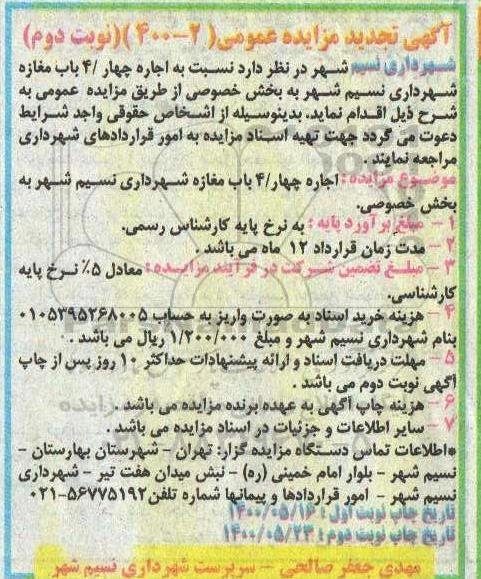 آگهی تجدید مزایده عمومی( ۲-۴۰۰ )(نوبت دوم)
شهرداری نسیم شهر در نظر دارد نسبت به اجاره چهار /۴ باب مغازه
شهرداری نسیم شهر به بخش خصوصی از طریق مزایده عمومی به
شرح ذیل اقدام نماید، بدینوسیله از اشخاص حقوقی واجد شرایط
دعوت می گردد جهت تهیه اسناد مزایده به امور قراردادهای شهرداری
مراجعه نمایند .
موضوع مزایده : اجاره چهار/۴ باب مغازه شهرداری نسیم شهر به
بخش خصوصی.
۱ – مبلغ برآورد پایه : به نرخ پایه کارشناس رسمی.
۲ – مدت زمان قرارداد ۱۲ ماه می باشد .
۳ – مبلغ تضمین شرکت در فرآیند مزایده : معادل ۵٪ نرخ پایه
کارشناسی.
۴ – هزینه خرید اسناد به صورت واریز به حساب ۰۱۰۵۳۹۵۲۶۸۰۰۵
بنام شهرداری نسیم شهر و مبلغ ۱/۲۰۰/۰۰۰ ریال می باشد .
۵ – مهلت دریافت اسناد و ارائه پیشنهادات حداکثر ۱۰ روز پس از چاپ
آگهی نوبت دوم می باشد .
۶ – هزینه چاپ آگهی به عهده برنده مزایده می باشد .
۷ – سایر اطلاعات و جزئیات در اسناد مزایده می باشد .
*اطلاعات تماس دستگاه مزایده گزار: تهران – شهرستان بهارستان –
نسیم شهر – بلوار امام خمینی (ره) – نبش میدان هفت تیر – شهرداری
نسیم شهر – امور قراردادها و پیمانها شماره تلفن۵۶۷۷۵۱۹۲-۰۲۱
تاریخ چاپ نوبت اول : ۱۴۰۰/۰۵/۱۶
تاریخ چاپ نوبت دوم : ۱۴۰۰/۰۵/۲۳
مهدی جعفر صالحی – سرپرست شهرداری نسیم شهر